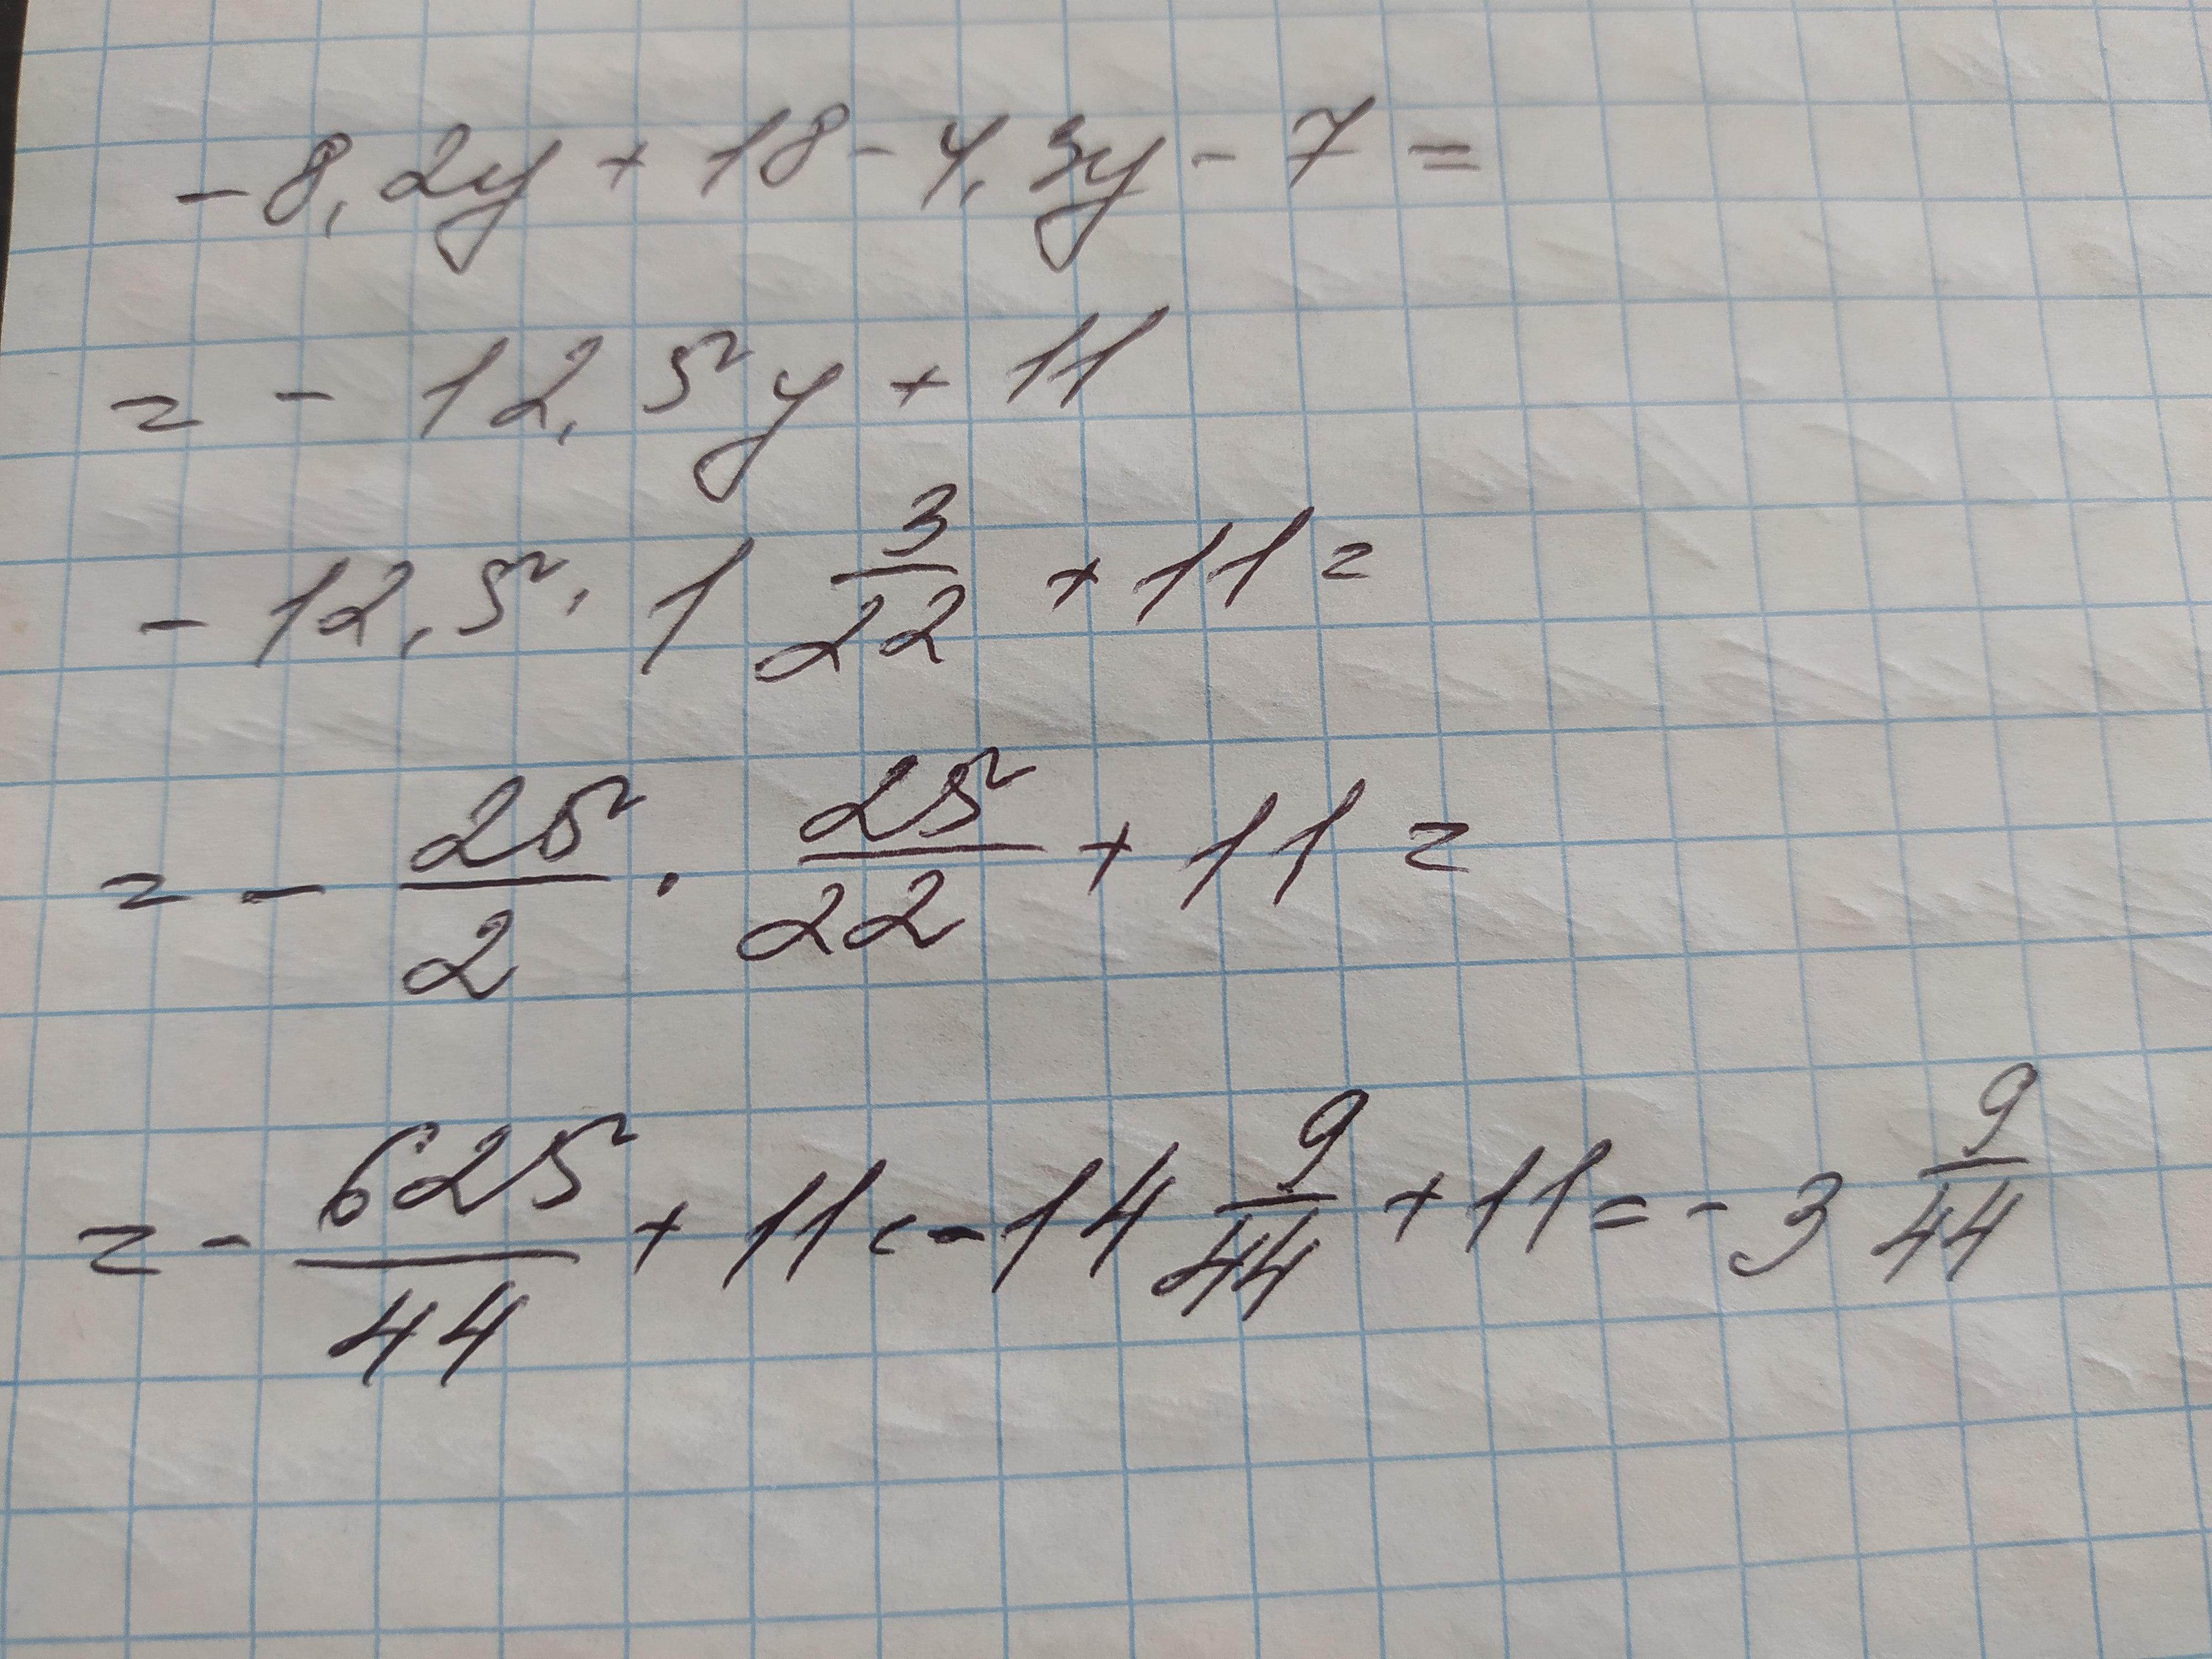 -8,2y + 18 - 4,3y - 7 =
= - 12,5y + 11
- 12,5 · 1 3/22 + 11 =
= - 25/2 · 25/22 + 11 =
= - 625/44 + 11 = -14 9/44 + 11 = - 3 9/44